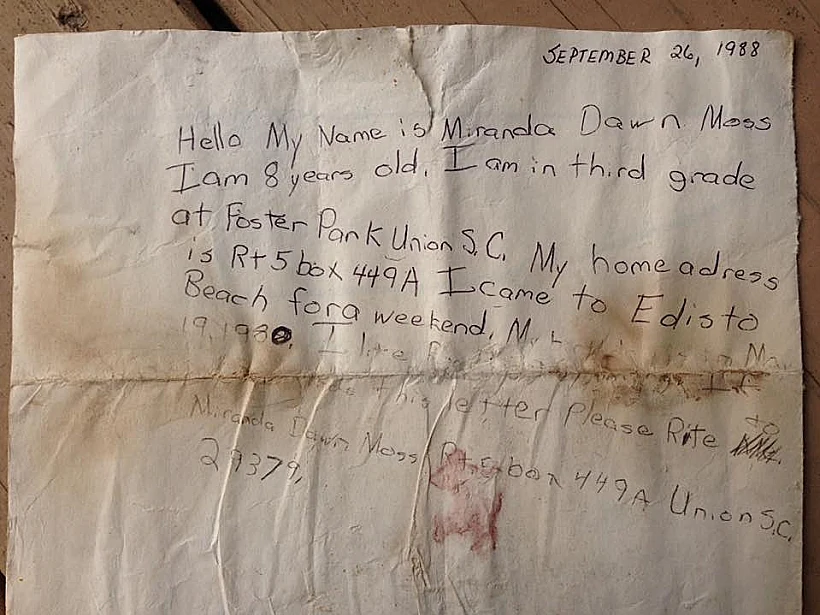 SEPTEMBER 26, 1988
Hello My Name is Miranda Dawn Moss
I am 8 years old. I am in third grade
at Foster Park Union S.C. My home adress
is Rt 5 box 449A I came to Edisto
Beach for a weekend. My
19,1980. I like
this letter Please Rite to
Miranda Dawn Moss Rt 5 box 449A Union S.C.
29379.